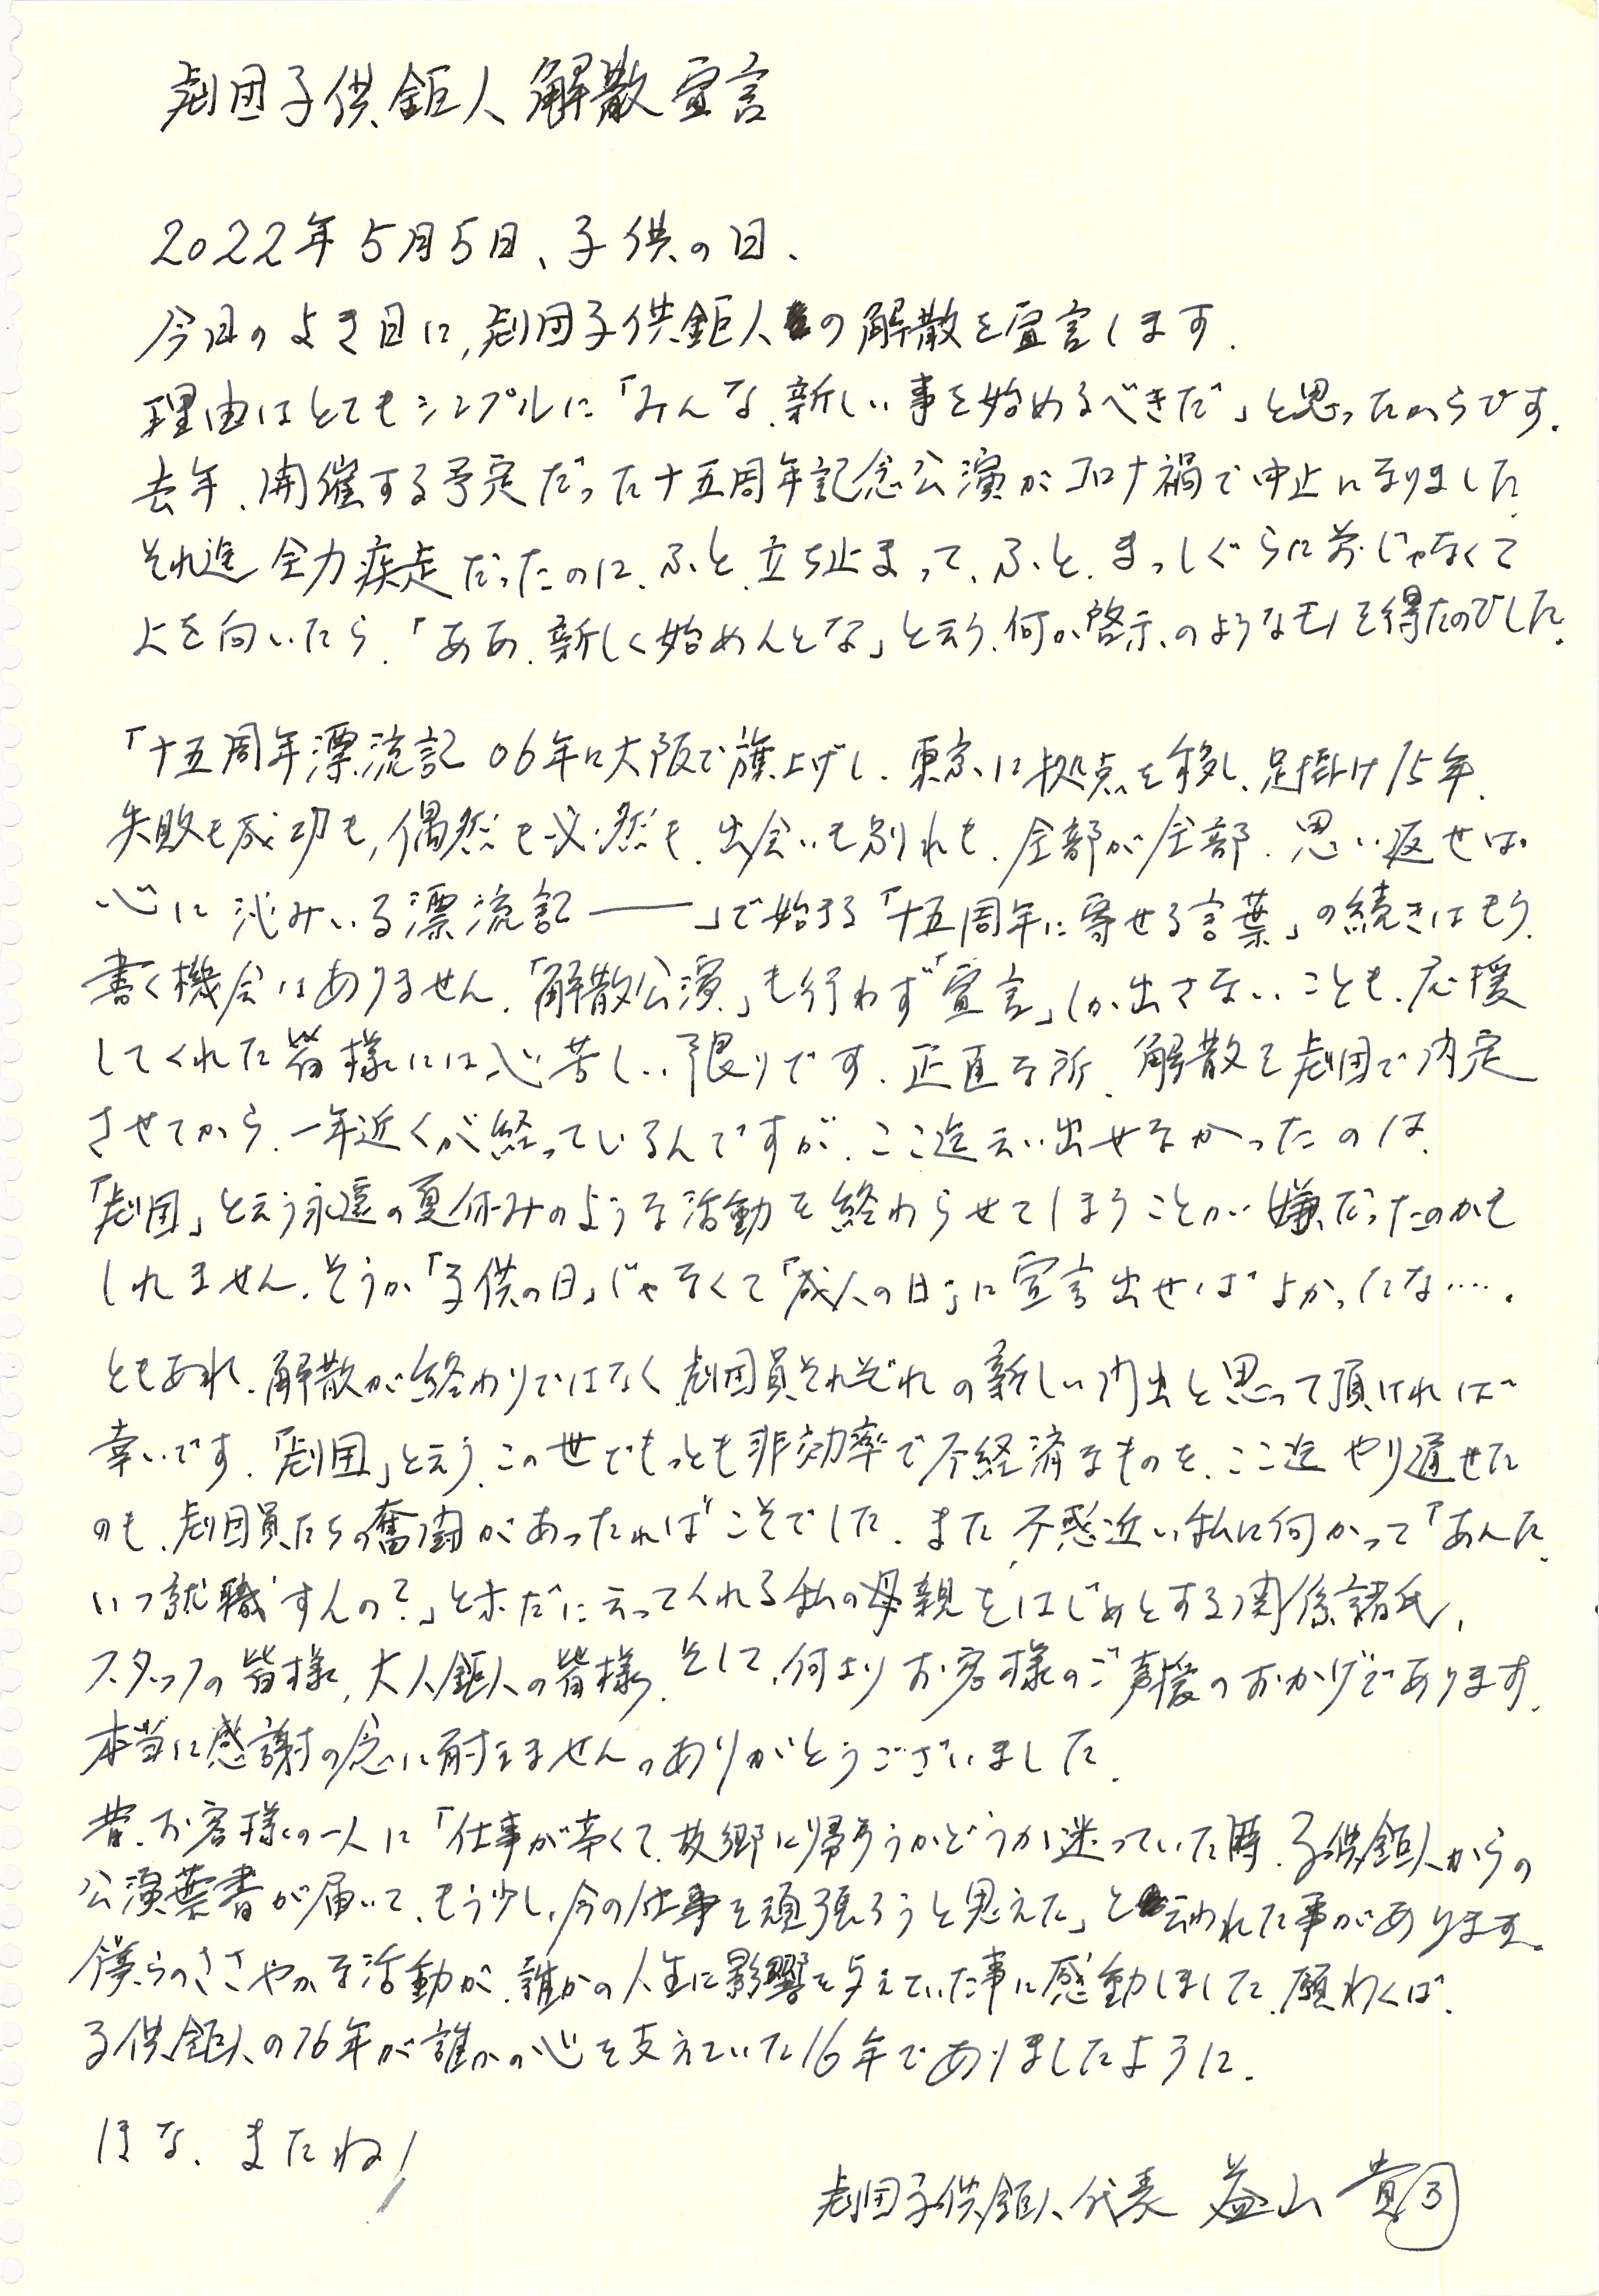 劇団子供鉅人解散宣言
2022年5月5日、子供の日、
今日のよき日に、劇団子供鉅人の解散を宣言します。
理由はとてもシンプルに「みんな、新しい事を始めるべきだ」と思ったからです。
去年、開催する予定だった十五周年記念公演がコロナ禍で中止になりました。
それ迄全力疾走だったのに、ふと、立ち止まって、ふと、まっしぐらに前じゃなくて
上を向いたら、「ああ、新しく始めんとな」と云う、何か啓示、のようなモノを得たのでした。
「十五周年漂流記 06年に大阪で旗上げし、東京に拠点を移し、足掛け15年、
失敗も成功も、偶然も必然も、出会いも別れも、全部が全部、思い返せば
心に沁みいる漂流記――」で始まる「十五周年に寄せる言葉」の続きはもう、
書く機会はありません。「解散公演」も行わず「宣言」しか出さないことも、応援
してくれた皆様には心苦しい限りです。正直な所、解散を劇団で内定
させてから、一年近くが経っているんですが、ここ迄云い出せなかったのは、
「劇団」と云う永遠の夏休みのような活動を終わらせてしまうことが嫌だったのかも
しれません。そうか「子供の日」じゃなくて「成人の日」に宣言出せばよかったな….
ともあれ、解散が終わりではなく、劇団員それぞれの新しい門出と思って頂ければ
幸いです。「劇団」と云う、この世でもっとも非効率で不経済なものを、ここ迄やり通せた
のも、劇団員たちの奮闘があったればこそでした。また、不惑近い私に向かって「あんた、
いつ就職すんの？」と未だに云ってくれる私の母親をはじめとする関係諸氏、
スタッフの皆様、大人鉅人の皆様、そして、何よりお客様のご声援のおかげであります。
本当に感謝の念に耐えません。ありがとうございました。
昔、お客様の一人に「仕事が辛くて、故郷に帰ろうかどうか迷っていた時、子供鉅人からの
公演葉書が届いて、もう少し、今の仕事を頑張ろうと思えた」と云われた事があります。
僕らのささやかな活動が、誰かの人生に影響を与えていた事に感動しました。願わくば、
子供鉅人の16年が誰かの心を支えていた16年でありましたように。
ほな、またね！
劇団子供鉅人代表 益山貴司